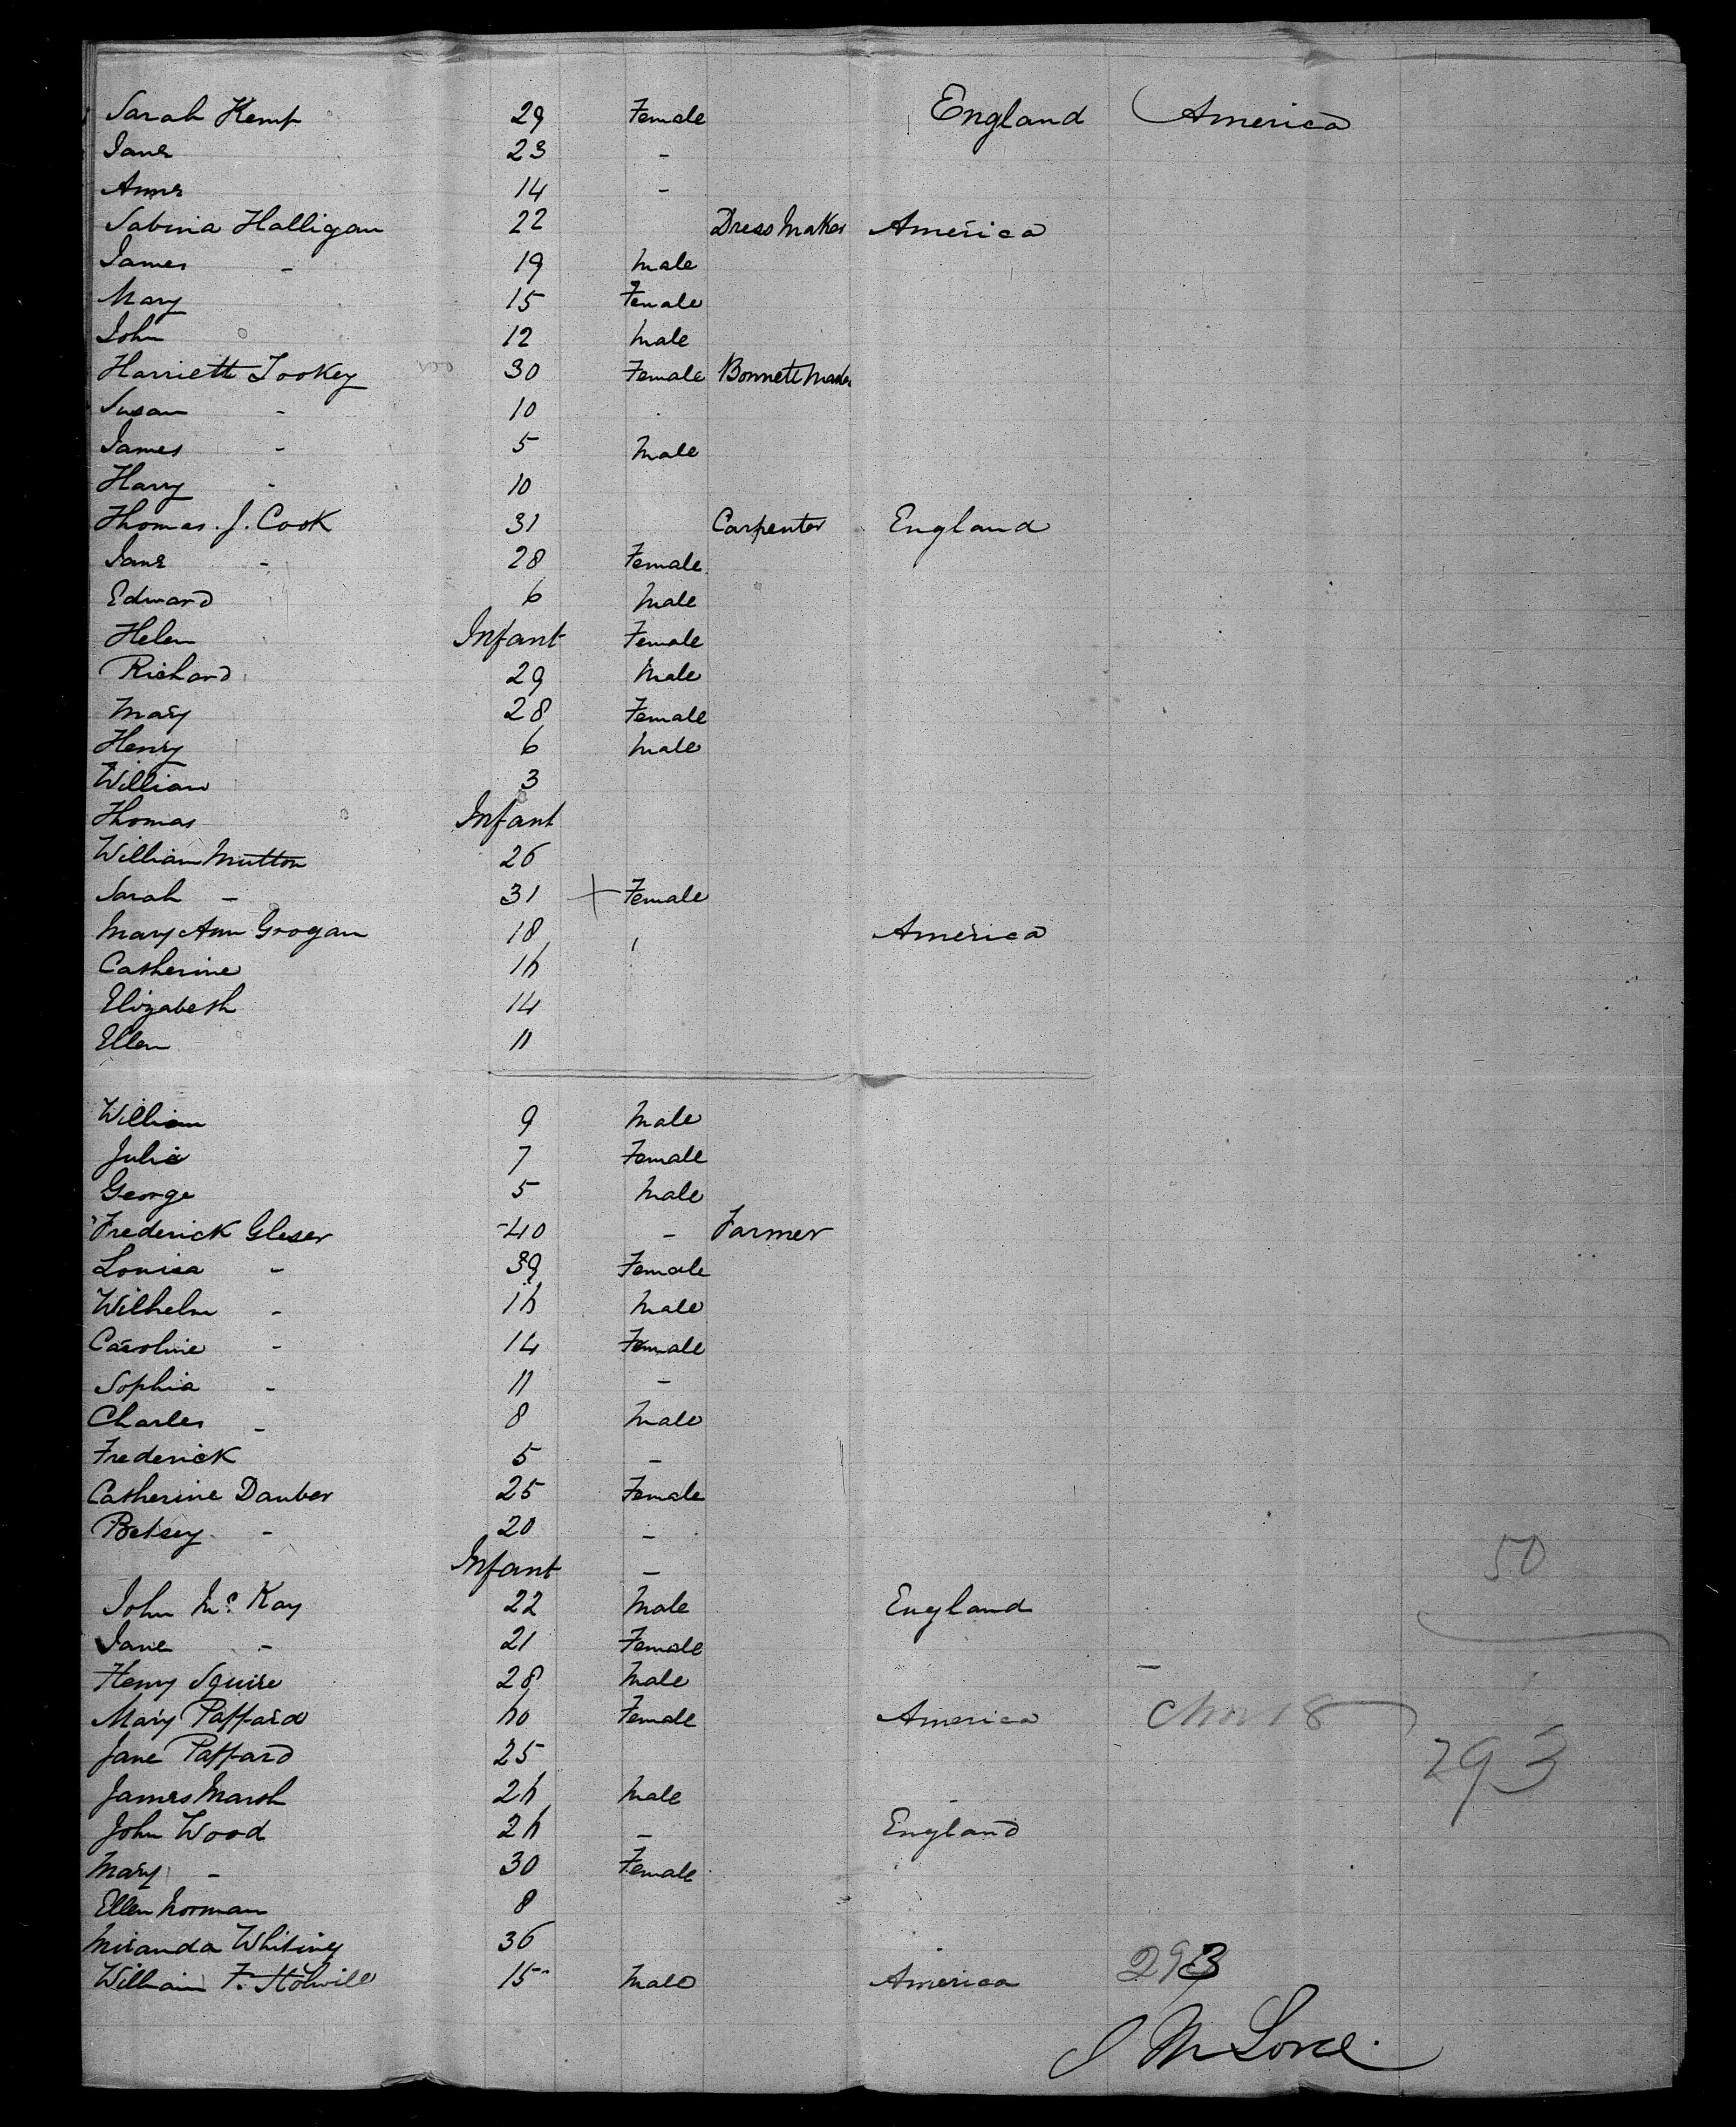 Sarah Kemp 29 Female England America
Jane 23 -
Anne 14 -
Sabina Halligan 22 Dress Maker America
James - 19 Male
Mary 15 Female
John 12 Male
Harriett Tookey 30 Female Bonnett Maker
Susan - 10
James - 5 Male
Harry - 10
Thomas. J. Cook 31 Carpenter England
Jane - 28 Female
Edward 6 Male
Helen Infant Female
Richard 29 Male
Mary 28 Female
Henry 6 Male
William 3
Thomas Infant
William Mutton 26
Sarah - 31 + Female
Mary Ann Grogan 18 America
Catherine 16
Elizabeth 14
Ellen 11
William 9 Male
Julia 7 Female
George 5 Male
Frederick Gleser 40 - Farmer
Louisa - 39 Female
Wilhelm - 16 Male
Caroline - 14 Female
Sophia - 11 -
Charles - 8 Male
Frederick 5 -
Catherine Dauber 25 Female
Betsey - 20 -
Infant - 50
John Mc Kay 22 Male England
Jane - 21 Female
Henry Squire 28 Male
Mary Paffard 60 Female America
Jane Paffard 25 293
James Marsh 26 Male
John Wood 26 - England
Mary - 30 Female
Ellen Norman 8
Miranda Whiting 36
William F. 15 Male America 293